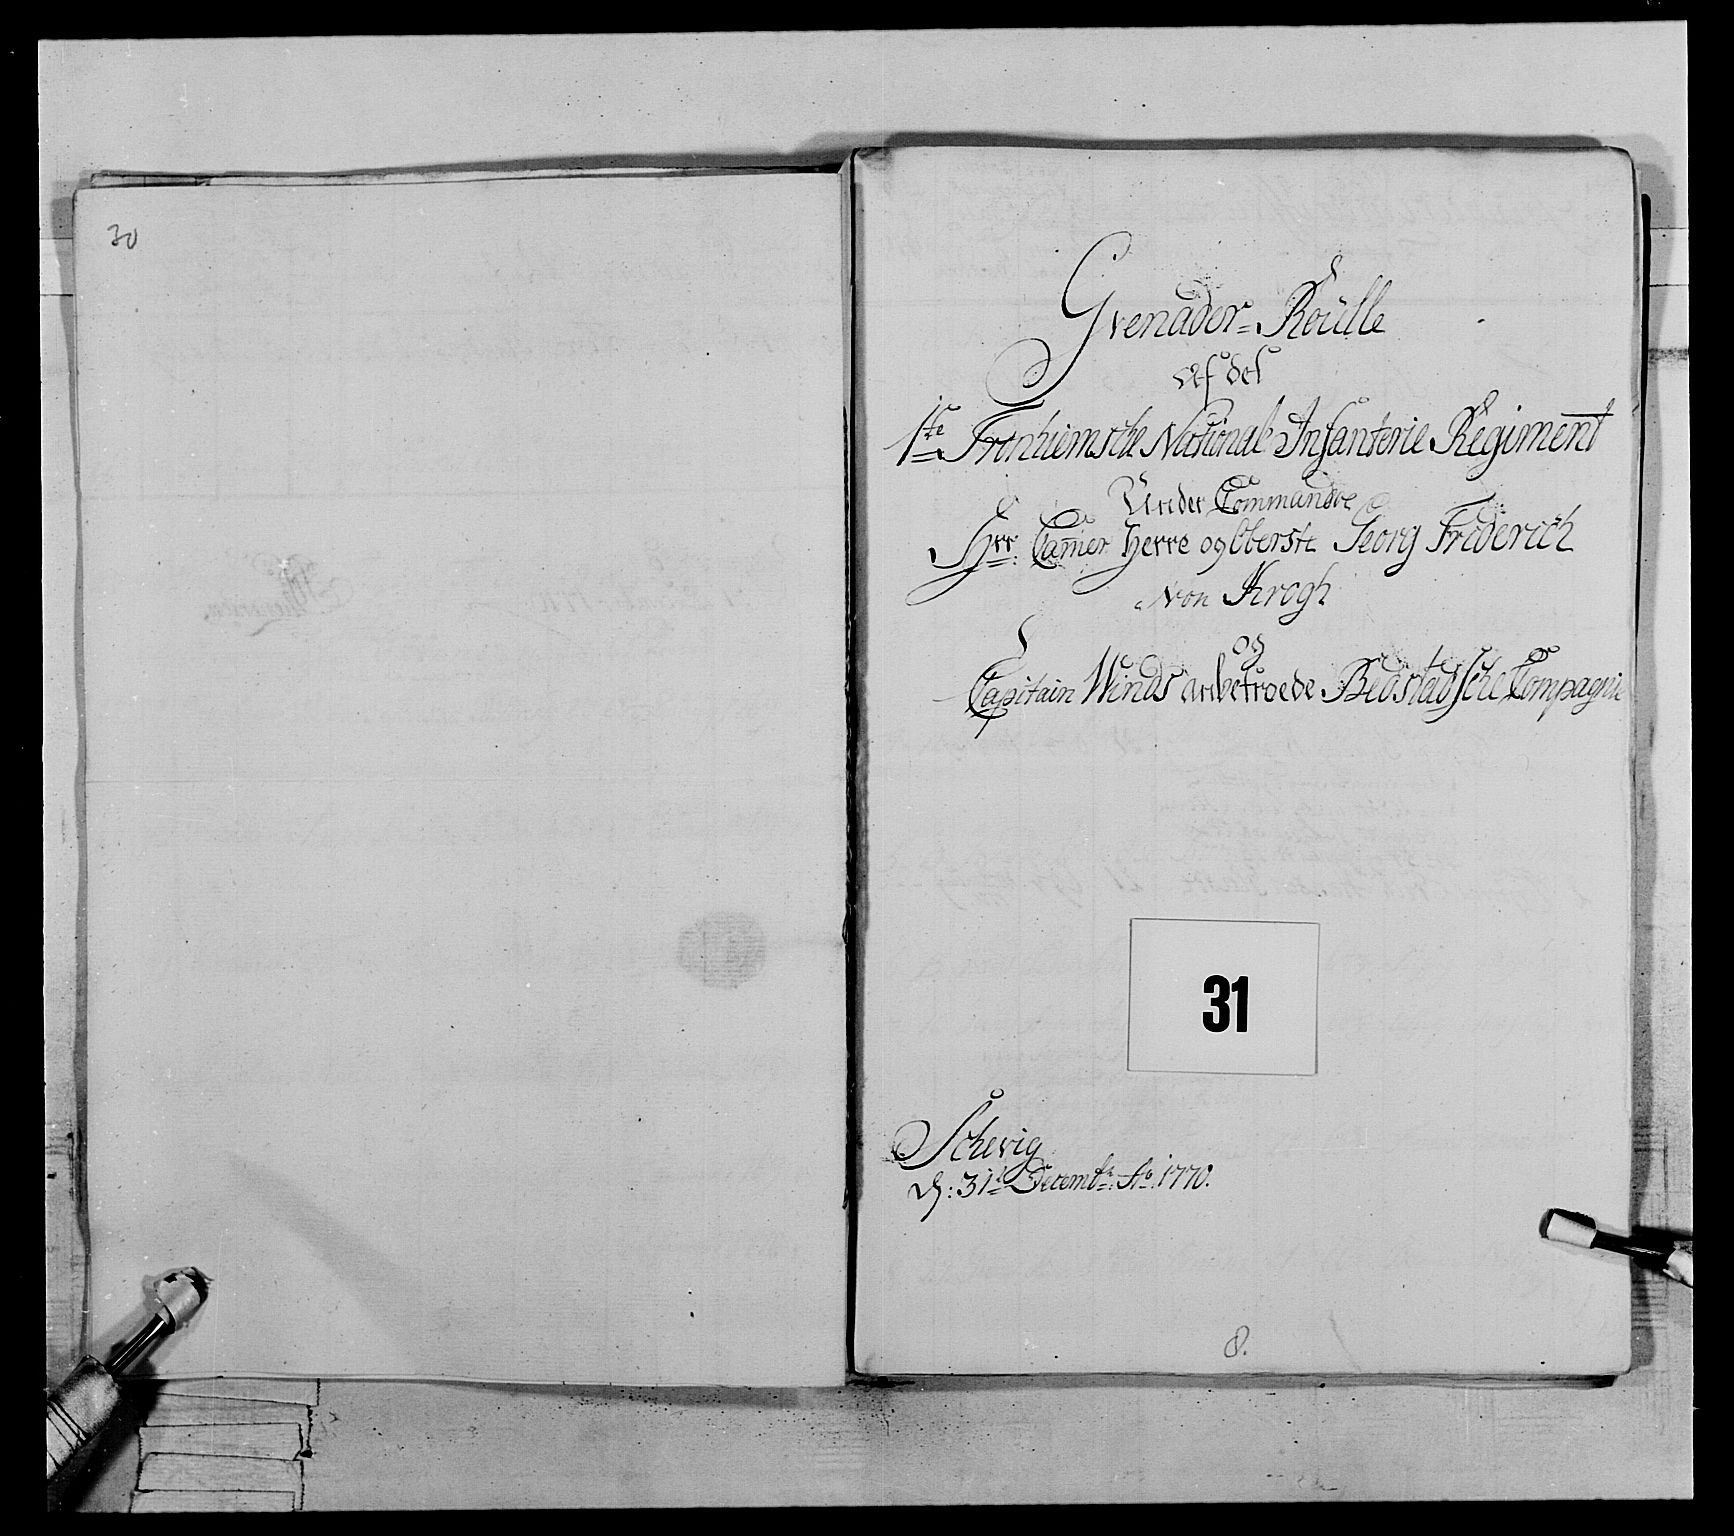 30
Grenader-Roülle
af det
1ste Tronhiemske National Infanterie Regiment
Under Commando
Hrr: Camer Herre og Oberste Georg Friderich
von Krogh
og
Capitain Winds anbetroede Bedstadsche Compagnie
31
Schevig
d: 31t Decembr: Ao. 1770.
8.